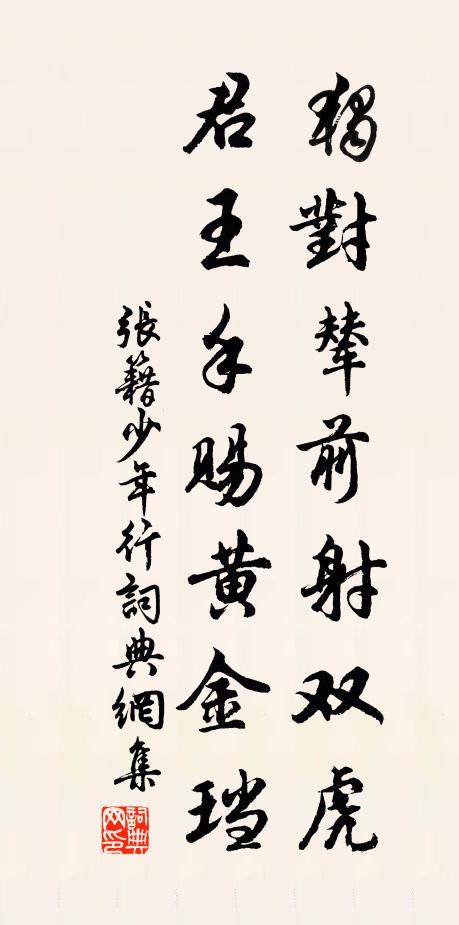 獨對輦前射双虎
君王手賜黄金珰
張籍少年行詞典網集
詞典网印